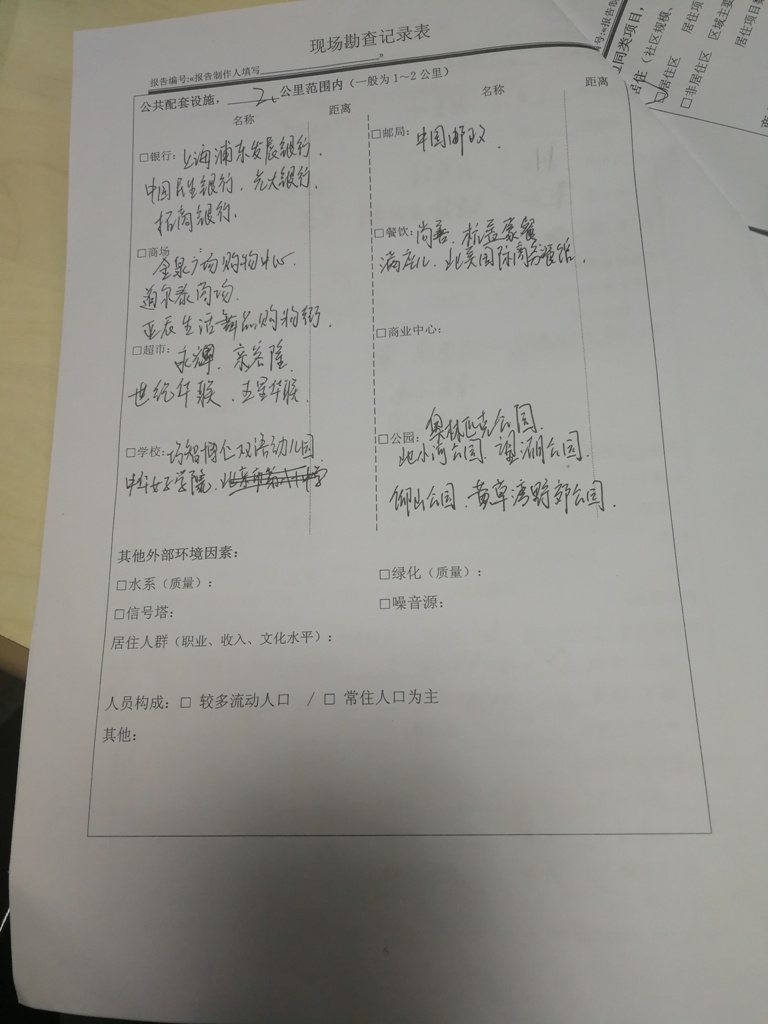 现场勘查记录表
报告编号:«报告制作人填写 »
公共配套设施，2公里范围内（一般为1～2公里）
名称 距离 名称 距离
□银行：上海浦东发展银行、
中国民生银行、光大银行、
招商银行、
□邮局：中国邮政、
□商场
金泉广场购物中心、
道尔泰商场、
亚辰生活 购物街、
□餐饮：尚善、
满庄儿、北美国际商务餐馆、
□超市：永辉、
世纪华联、五星华联、
□商业中心：
□学校：巧智博仁双语幼儿园、
中华女子学院、
□公园：奥林匹克公园、
北小河公园、 湖公园、
仰山公园、黄草湾野郊公园、
其他外部环境因素：
□水系（质量）： □绿化（质量）：
□信号塔： □噪音源：
居住人群（职业、收入、文化水平）：
人员构成：□ 较多流动人口 / □ 常住人口为主
其他：
同类项目，
居住（社区规模、
□居住区 居住项
□非居住区 区域主要
居住项目